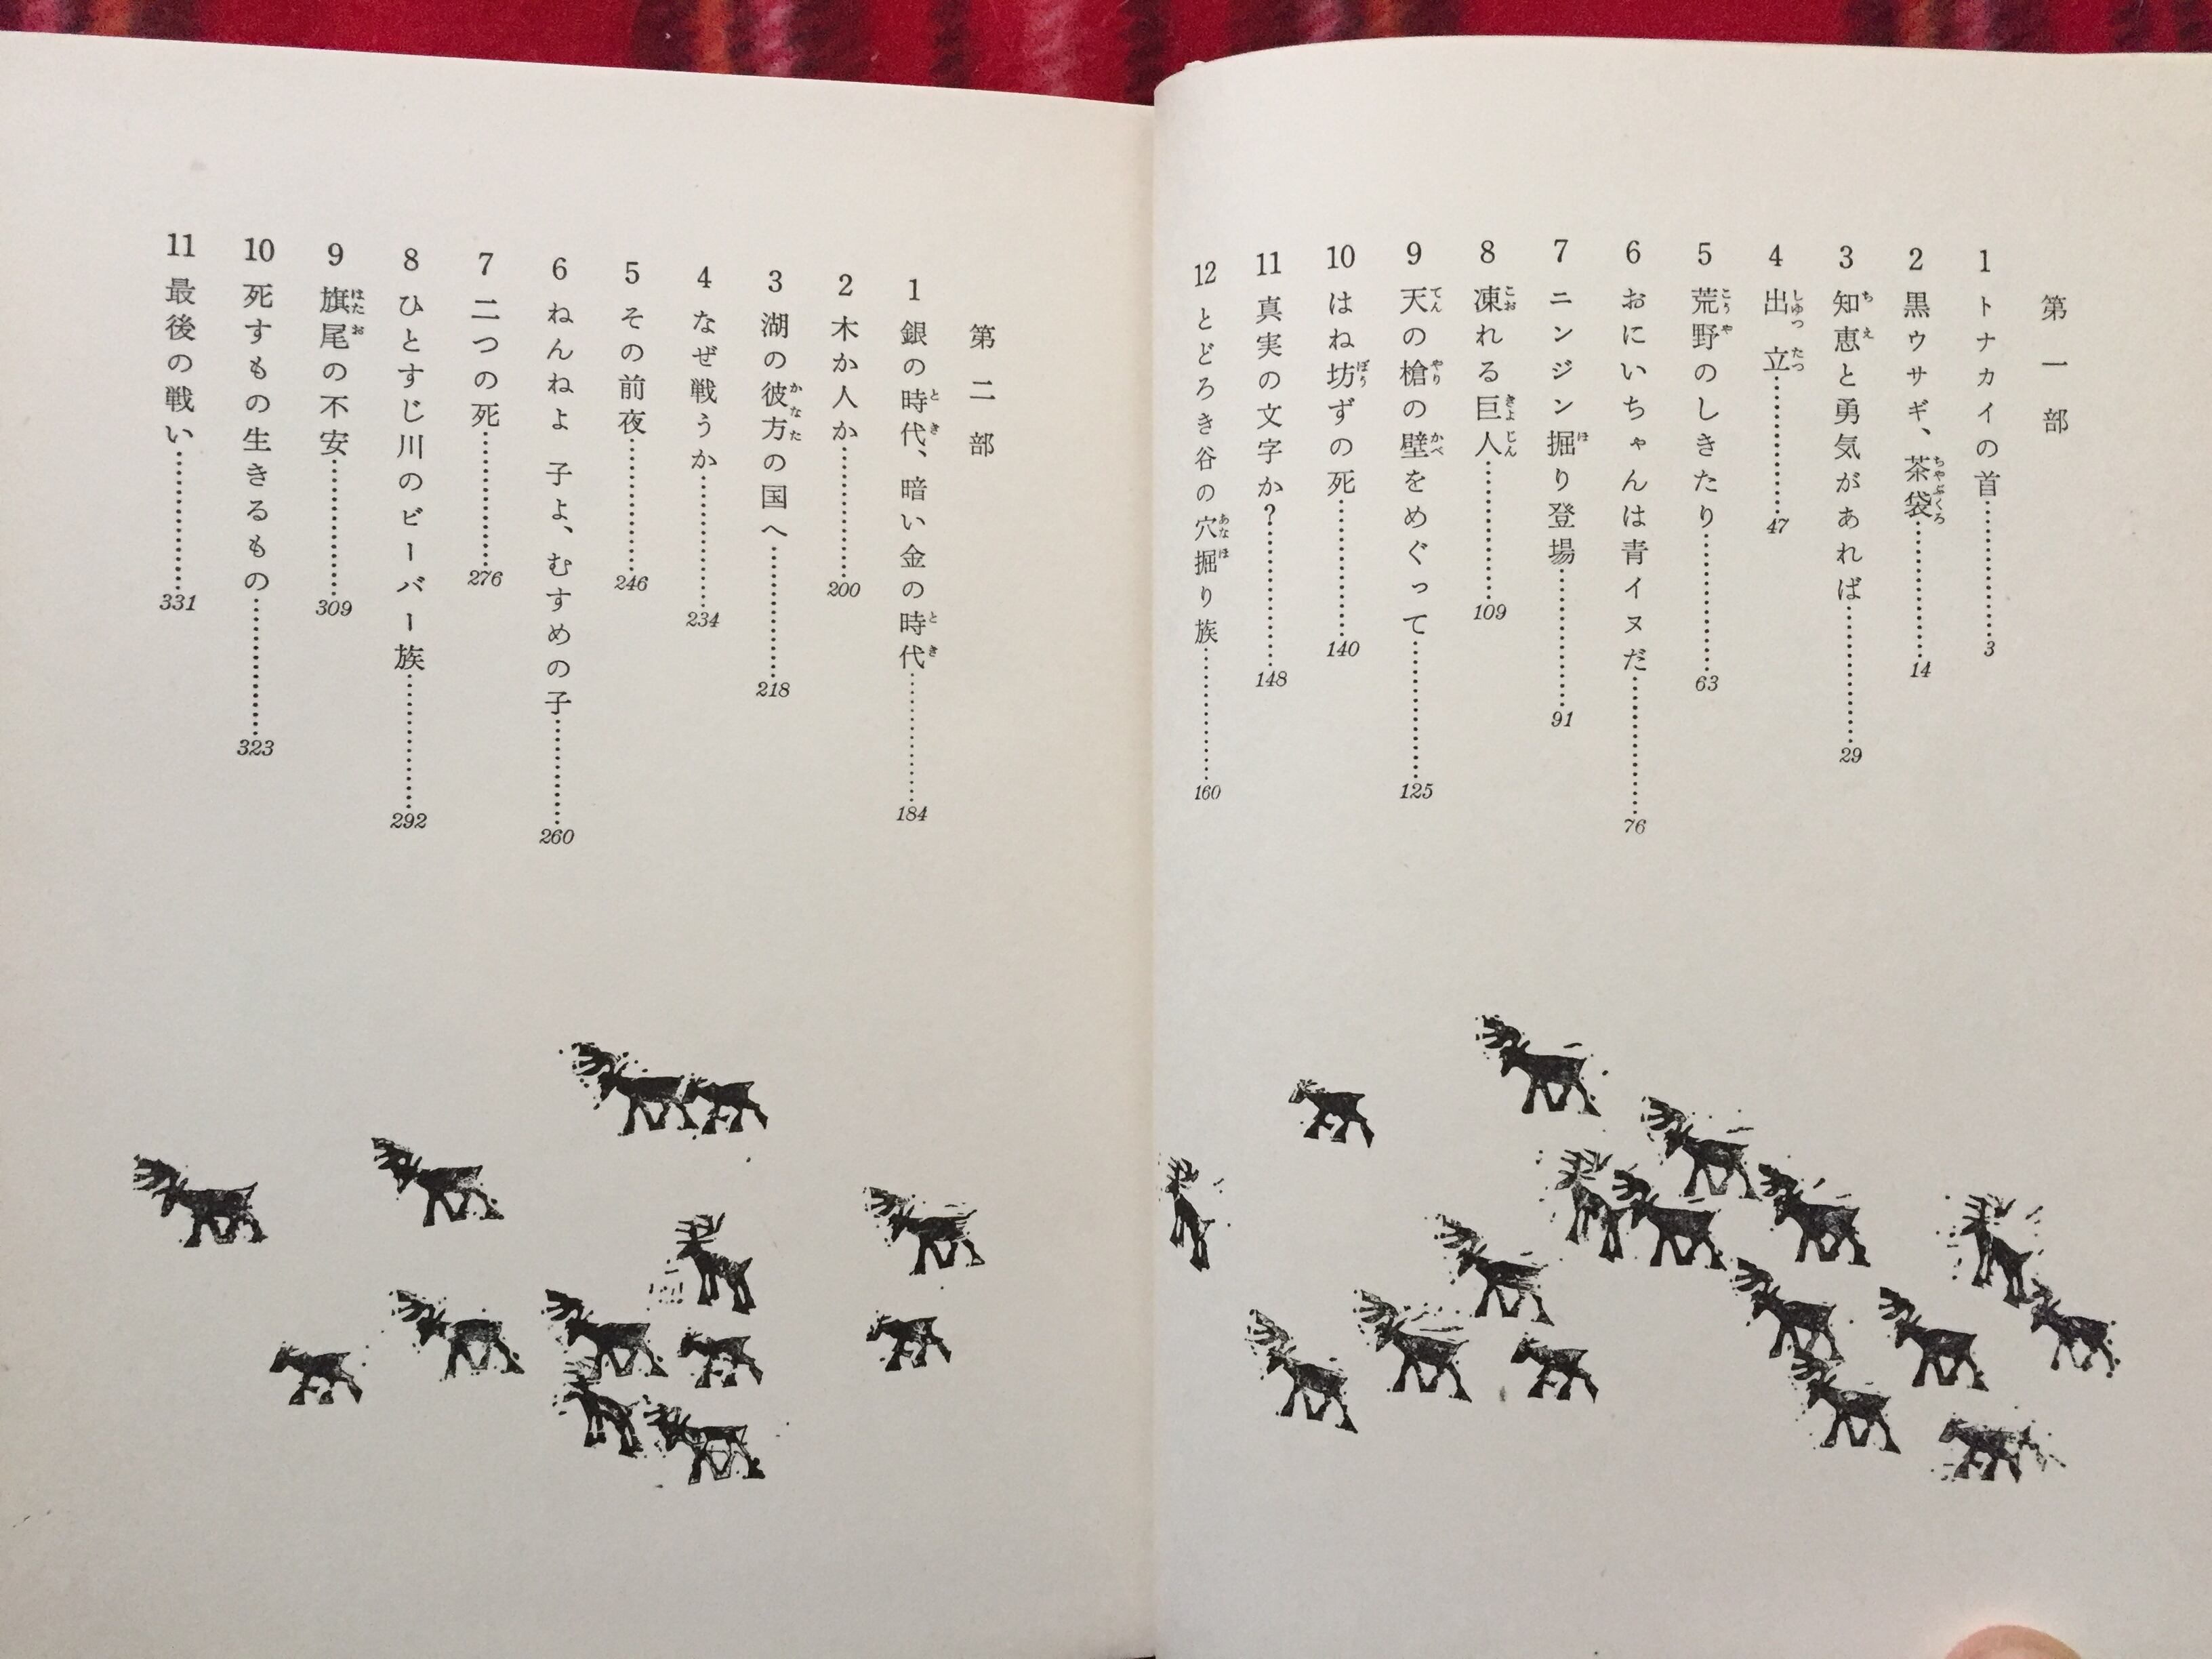 第一部
1 トナカイの首…………3
2 黒ウサギ、茶袋…………14
3 知恵と勇気があれば…………29
4 出立…………47
5 荒野のしきたり…………63
6 おにいちゃんは青イヌだ…………76
7 ニンジン掘り登場…………91
8 凍れる巨人…………109
9 天の槍の壁をめぐって…………125
10 はね坊ずの死…………140
11 真実の文字か?…………148
12 とどろき谷の穴掘り族…………160
第二部
1 銀の時代、暗い金の時代…………184
2 木か人か…………200
3 湖の彼方の国へ…………218
4 なぜ戦うか…………234
5 その前夜…………246
6 ねんねよ 子よ、むすめの子…………260
7 二つの死…………276
8 ひとすじ川のビーバー族…………292
9 旗尾の不安…………309
10 死すもの生きるもの…………323
11 最後の戦い…………331